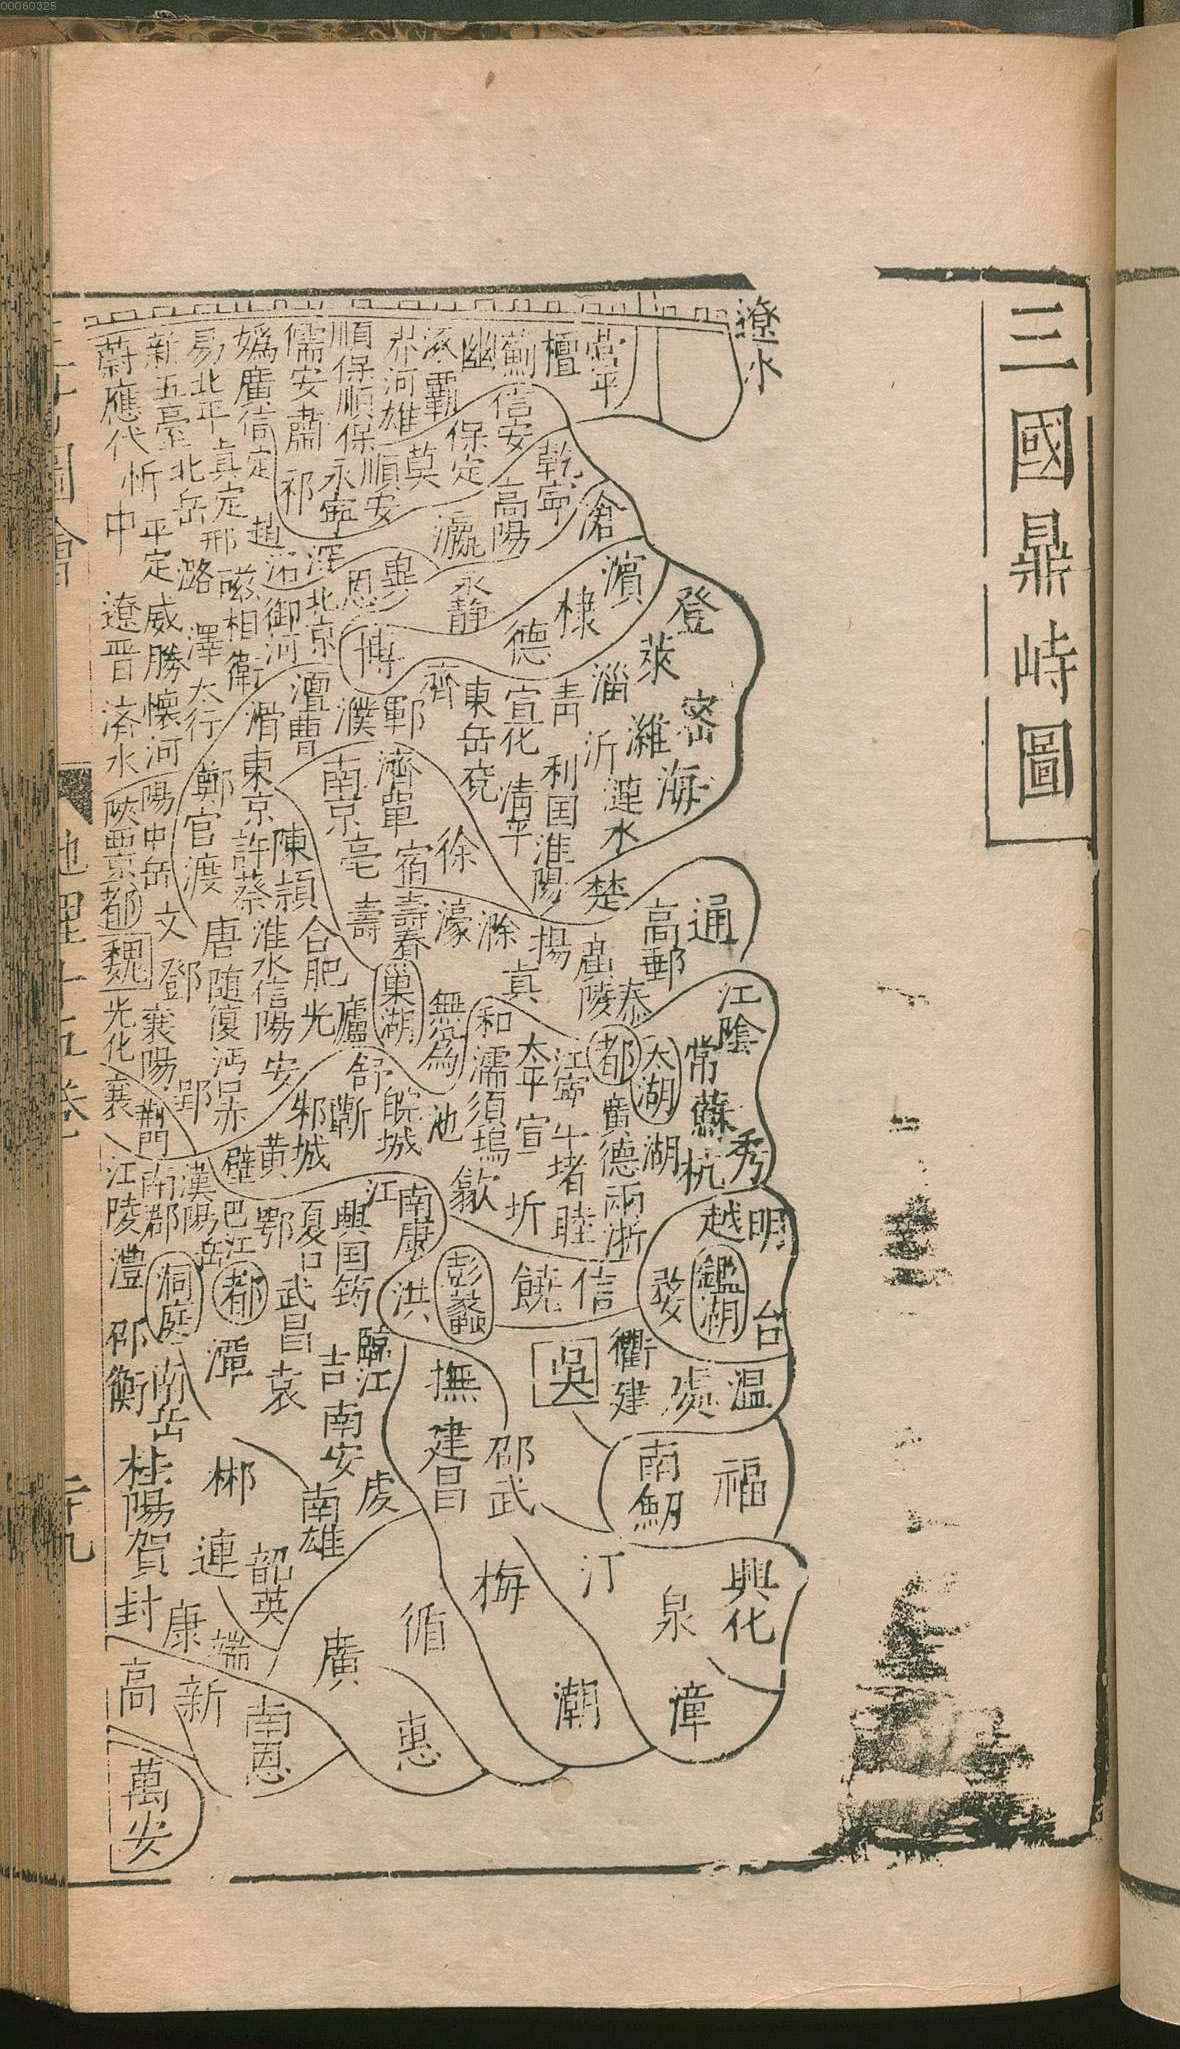 00060325
三國鼎峙圖
遼水
營平
檀
薊信安
幽
涿霸
保定
莫
順保順保順安
儒安肅
祁
永寧
媯廣信定
易北平
真定
邢
新五臺北岳
蔚應代
忻
中
平定
乾寧
滄
高陽
瀛
永靜
恩
博
濱
棣
德
登
萊
密
海
淄
濰
漣水
青
沂
宣化
利國淮陽
清平
楚
齊
東岳兗
鄆
濮
澶曹
滑
北京
御河
趙
潞
磁相衛
澤
太行
威勝懷河
遼晉
濟水
濟單
宿
徐
南京亳
壽
壽春
濠
滁
東京許蔡
陳潁
鄭官渡
陽中岳
都
魏
文
鄧
唐隨復沔
淮水信陽
合肥
光
廬
巢湖
無為
和
濡須塢
真
揚
高郵
通
泰
江陰
都
太湖
常蘇
秀
杭
湖
廣德
兩浙
江寧
牛堵
睦
太平
宣
歙
池
舒
皖城
蘄
邾城
安
黃
赤
壁
郢
光化
襄
襄陽
荊門
江陵
南郡
漢陽
岳
巴江
都
鄂
夏口
興國
江
南康
筠
洪
彭蠡
饒
信
越
明
鑑湖
婺
台
衢
建
處
溫
吳
澧
洞庭
武昌
臨江
吉
南安
袁
潭
邵
衡
南岳
撫
建昌
邵武
南劒
福
桂陽
賀
封
郴
連
韶英
南雄
虔
康
端
梅
汀
泉
興化
循
廣
潮
漳
惠
高
新
南恩
萬安